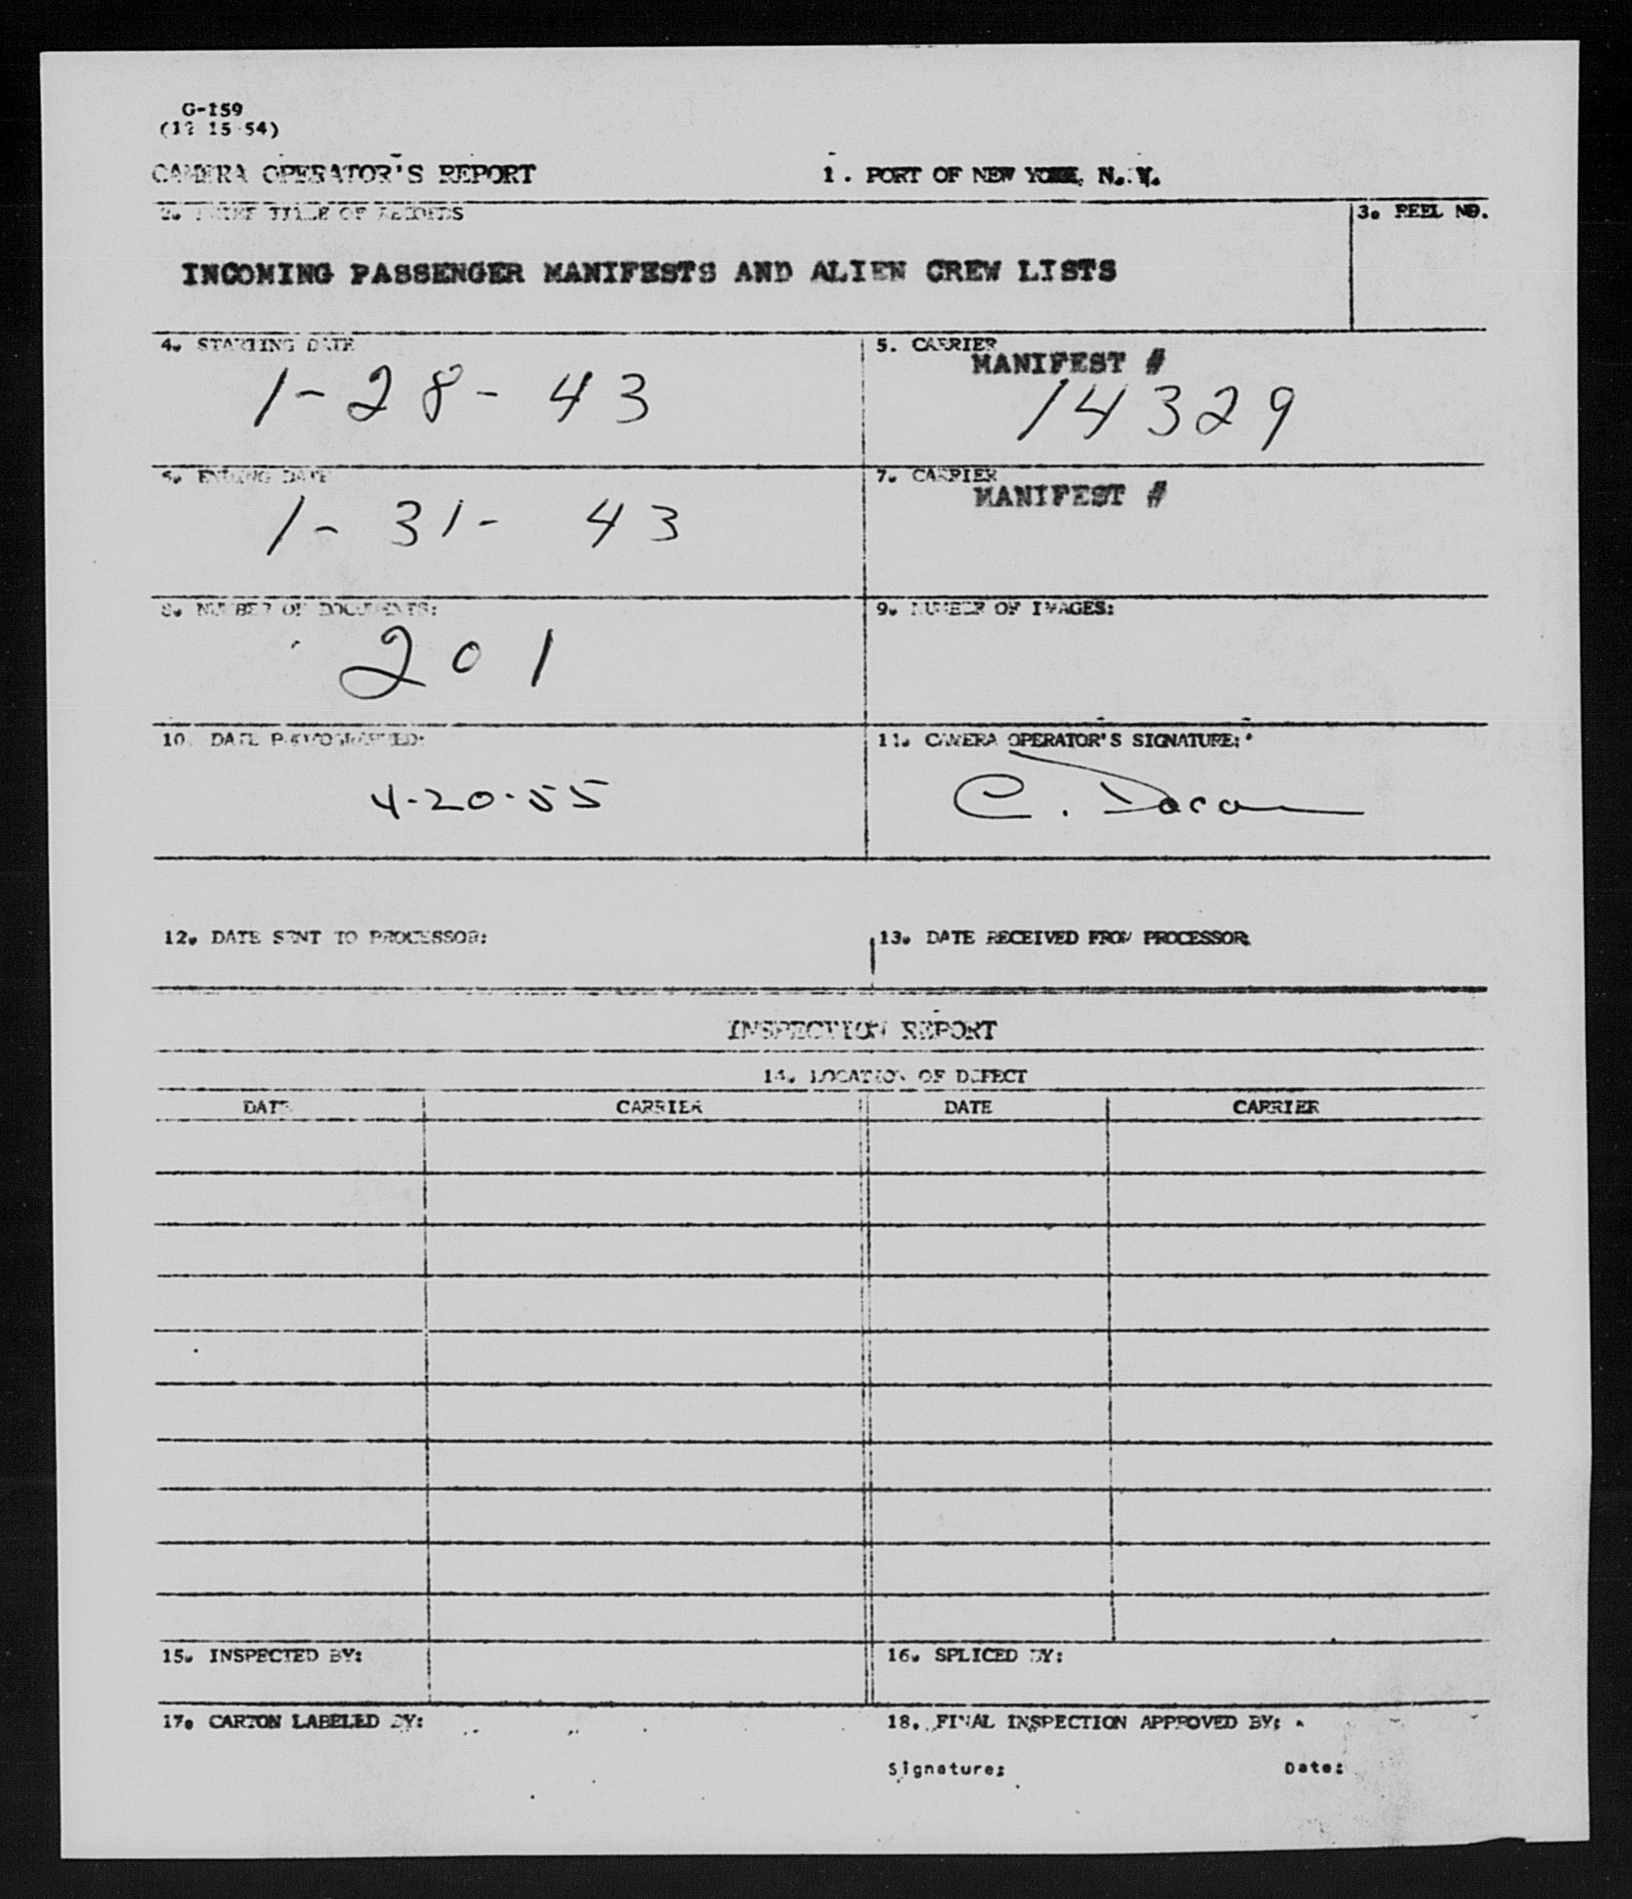 G-159
(12 15 54)
CAMERA OPERATOR'S REPORT
1. PORT OF NEW YORK, N. Y.
2. BRIEF TITLE OF RECORDS
3. REEL NO.
INCOMING PASSENGER MANIFESTS AND ALIEN CREW LISTS
4. STARTING DATE
5. CARRIER
MANIFEST #
1-28-43
14329
6. ENDING DATE
7. CARRIER
MANIFEST #
1-31-43
8. NUMBER OF DOCUMENTS:
9. NUMBER OF IMAGES:
201
10. DATE PHOTOGRAPHED:
11. CAMERA OPERATOR'S SIGNATURE:
4-20-55
C.
12. DATE SENT TO PROCESSOR:
13. DATE RECEIVED FROM PROCESSOR
INSPECTION REPORT
14. LOCATION OF DEFECT
DATE CARRIER DATE CARRIER
15. INSPECTED BY:
16. SPLICED BY:
17. CARTON LABELED BY:
18. FINAL INSPECTION APPROVED BY:
Signature:
Date: